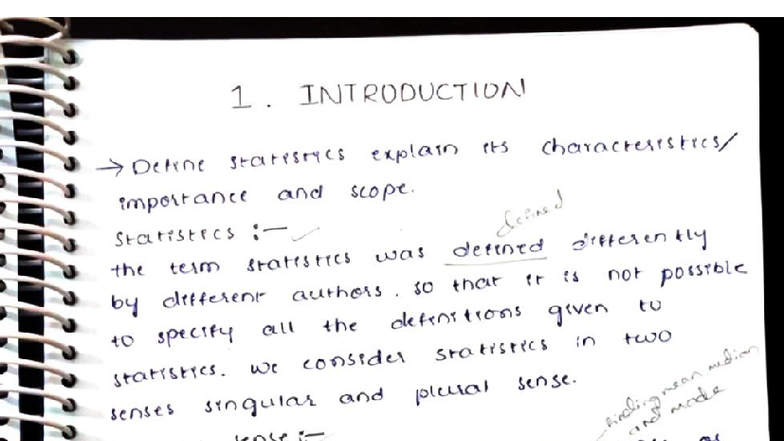 1. INTRODUCTION
→ Define statistics explain its characteristics/
importance and scope.
Statistics :-
defined
the term statistics was defined differently
by different authors. so that it is not possible
to specify all the definitions given to
statistics. we consider statistics in two
senses singular and plural sense.
finding mean median
and mode
sense :-